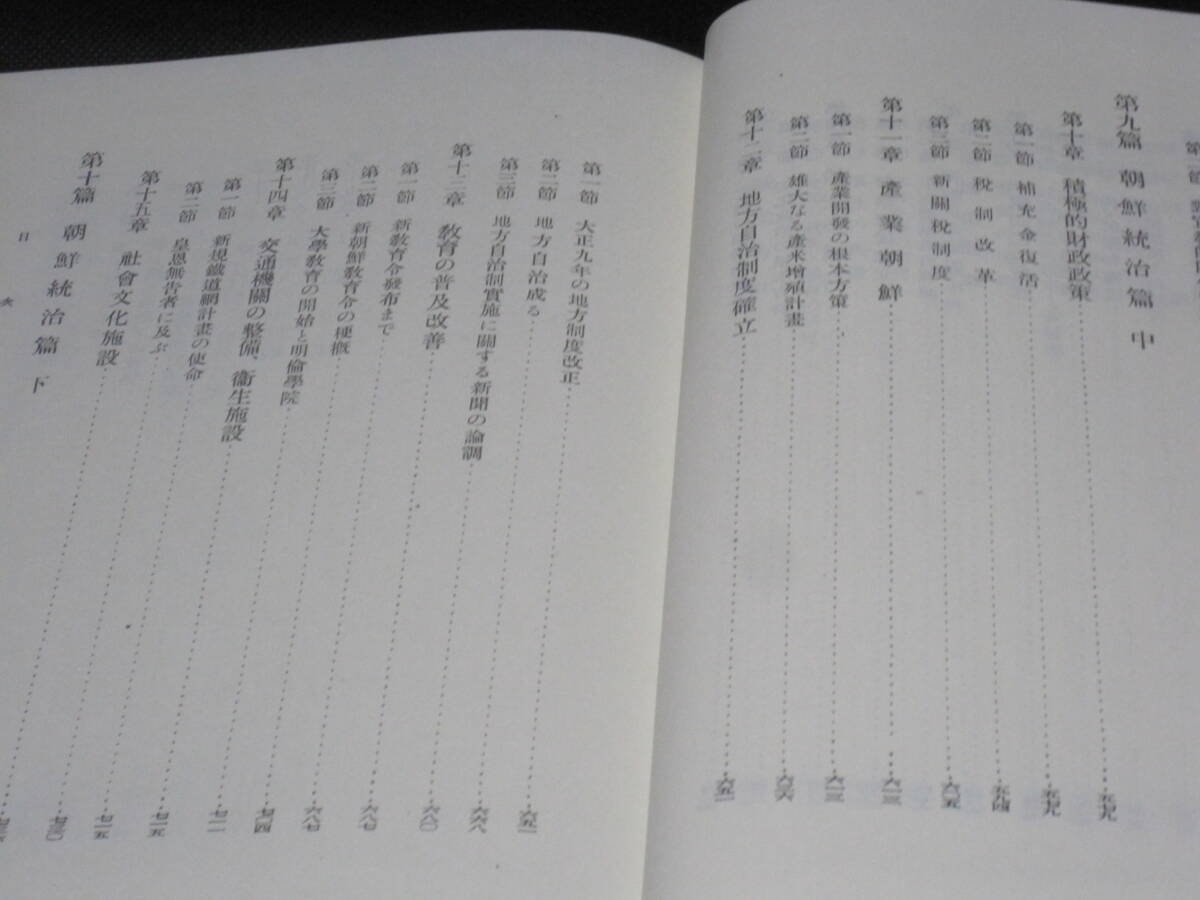 第九篇 朝鮮統治篇 中
第十章 積極的財政政策……五九九
第一節 補充金復活……五九九
第二節 税制改革
第三節 新關税制度
第十一章 產業朝鮮……六一三
第一節 產業開發の根本方策……六一三
第二節 雄大なる產米增殖計畫
第十二章 地方自治制度確立……六五一
第一節 大正九年の地方制度改正
第二節 地方自治成る
第三節 地方自治制實施に關する新聞の論調
第十三章 教育の普及改善
第一節 新教育令發布まで
第二節 新朝鮮教育令の梗概
第三節 大學教育の開始と明倫學院
第十四章 交通機關の整備、衞生施設
第一節 新規鐵道網計畫の使命
第二節 皇恩無告者に及ぶ
第十五章 社會文化施設
第十篇 朝鮮統治篇 下
目 次